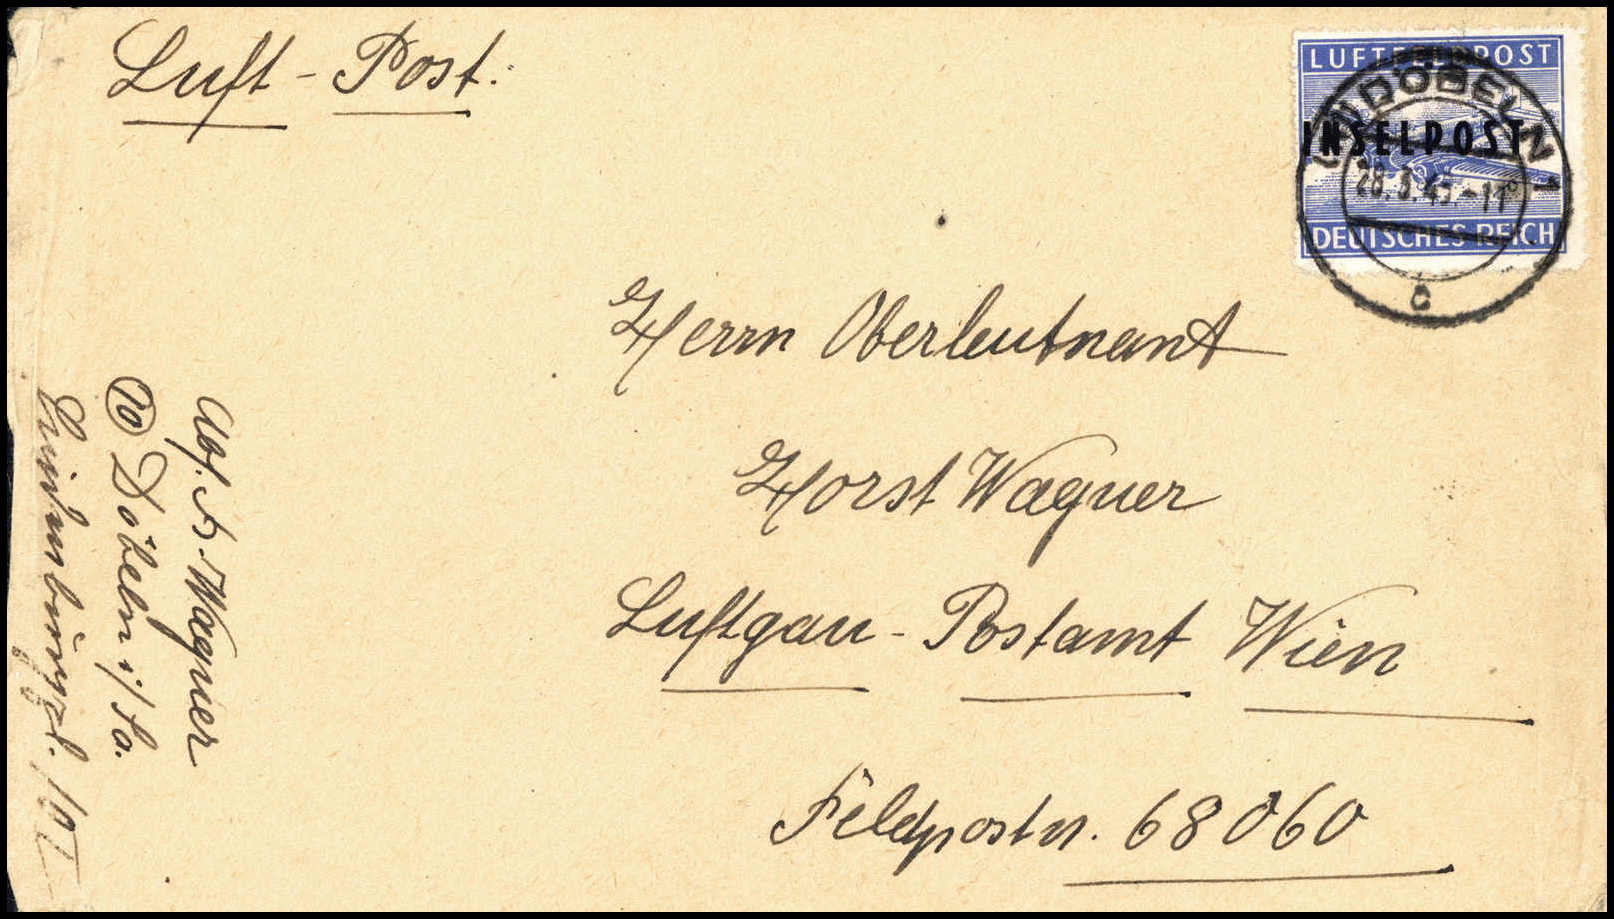 Luft-Post.
LUFTFELDPOST
INSELPOST
DEUTSCHES REICH
DÖBELN
c
Herrn Oberleutnant
Horst Wagner
Luftgau-Postamt Wien
Feldpostn. 68060
Abs. A. Wagner
(10) Döbeln i/Sa.